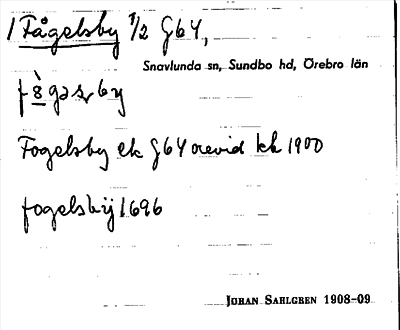 1 Fågelsby 1/2 G64,
Snavlunda sn, Sundbo hd, Örebro län
Fogelsby ek G64 orevid kk 1900
fogelsbij 1696
JOHAN SAHLGREN 1908-09